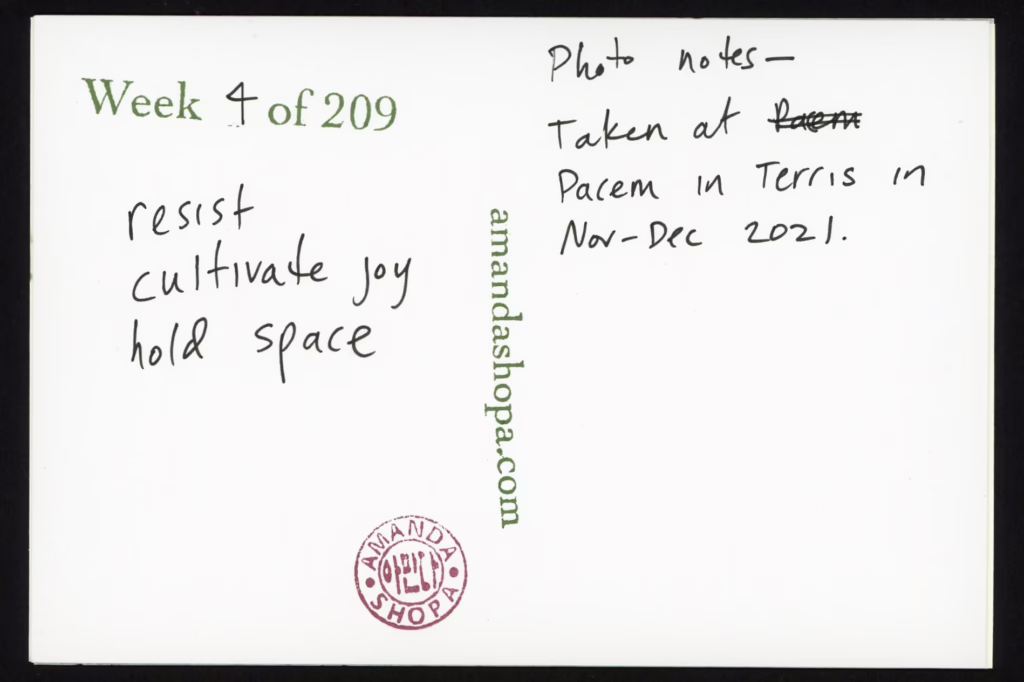 Week 4 of 209
resist
cultivate joy
hold space
amandashopa.com
Photo notes—
Taken at Pacem
Pacem in Terris in
Nov-Dec 2021.
AMANDA
아만다
SHOPA